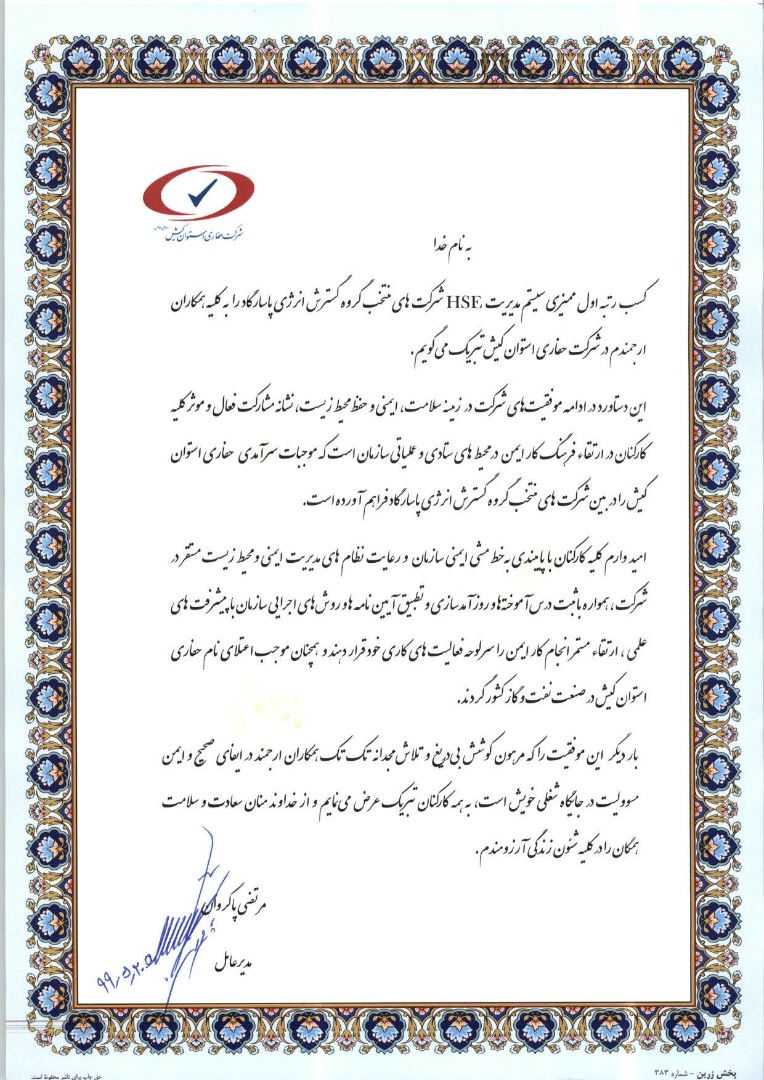 شرکت حفاری استوان کیش
به نام خدا
کسب رتبه اول ممیزی سیستم مدیریت HSE شرکت های منتخب گروه گسترش انرژی پاسارگاد را به کلیه همکاران
ارجمندم در شرکت حفاری استوان کیش تبریک می گویم.
این دستاورد در ادامه موفقیت های شرکت در زمینه سلامت، ایمنی و حفظ محیط زیست، نشانه مشارکت فعال و موثر کلیه
کارکنان در ارتقاء فرهنگ کار ایمن در محیط های ستادی و عملیاتی سازمان است که موجبات سرآمدی حفاری استوان
کیش را در بین شرکت های منتخب گروه گسترش انرژی پاسارگاد فراهم آورده است.
امید وارم کلیه کارکنان با پایبندی به خط مشی ایمنی سازمان و رعایت نظام های مدیریت ایمنی و محیط زیست مستقر در
شرکت، همواره با ثبت درس آموخته ها و روز آمد سازی و تطبیق آیین نامه ها و روش های اجرایی سازمان با پیشرفت های
علمی ، ارتقاء مستمر انجام کار ایمن را سرلوحه فعالیت های کاری خود قرار دهند و همچنان موجب اعتلای نام حفاری
استوان کیش در صنعت نفت و گاز کشور گردند.
بار دیگر این موفقیت را که مرهون کوشش بی دریغ و تلاش مجدانه تک تک همکاران ارجمند در ایفای صحیح و ایمن
مسوولیت در جایگاه شغلی خویش است، به همه کارکنان تبریک عرض می نمایم و از خداوند منان سعادت و سلامت
همگان را در کلیه شئون زندگی آرزومندم.
مرتضی پاکروان
مدیرعامل
۹۹,۵,۲۰
پخش زرین - شماره ۳۸۳
حق چاپ برای ناشر محفوظ است.